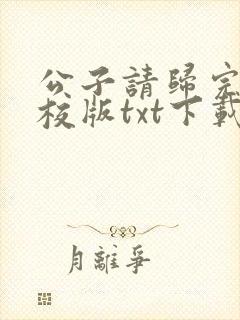 公子請歸完
校版txt下載
月離爭